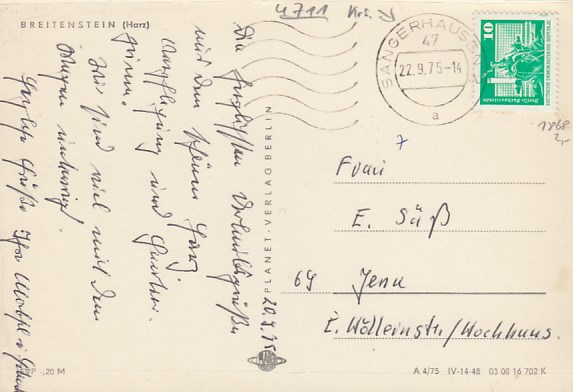 BREITENSTEIN (Harz)
4711 Krs.
SANGERHAUSEN
47
22.9.75-14
a
10
DEUTSCHE DEMOKRATISCHE REPUBLIK
1868
2,-
7
Die herzlichsten Urlaubsgrüße
aus dem schönen Harz.
Verpflegung und Quartier
prima.
Wir sind viel mit dem
Wagen unterwegs.
Herzliche Grüße Ihre
20.9.75
PLANET-VERLAG BERLIN
Frau
E. Süß
69 Jena
/Hochhaus.
-,20 M
A 4/75 IV-14-48 03 08 16 702 K